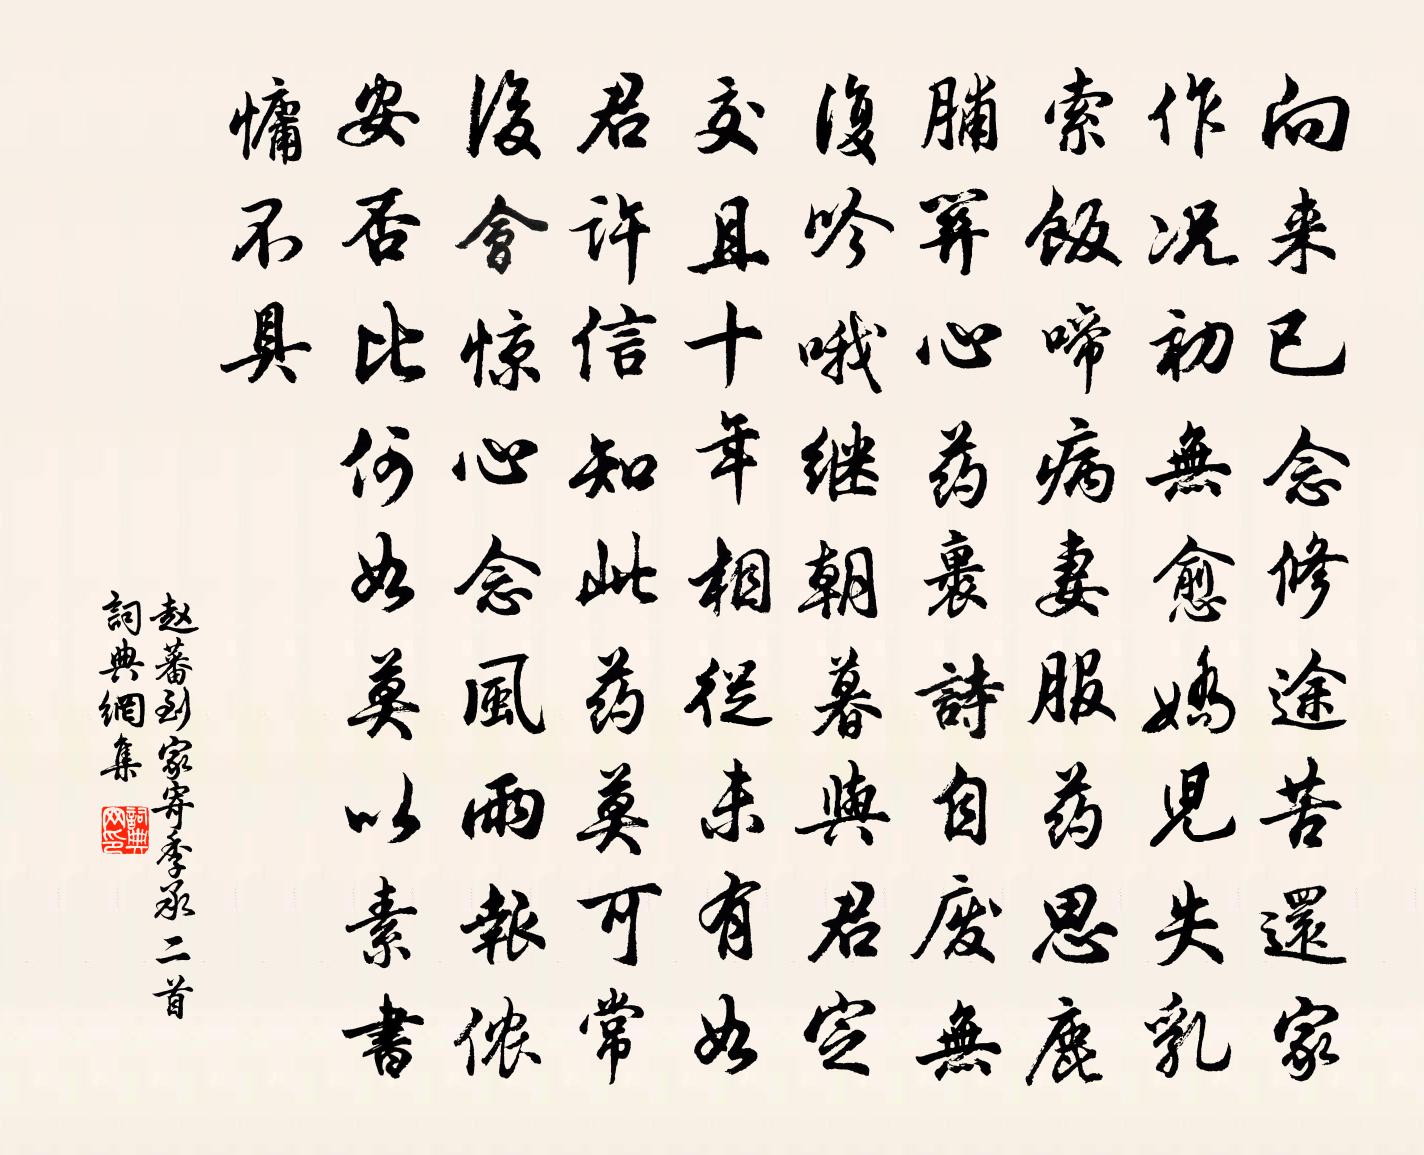 向来已念修途苦還家
作况初無愈嬌児失乳
索飯啼病妻服药思鹿
脯葬心药裹詩自废無
復吟哦继朝暮與君定
交且十年相從未有如
君許信知此药莫可常
後會惊心念風雨報侬
安否比何如莫以素書
慵不具
赵蕃到家寄季承二首
詞典網集
詞典网印